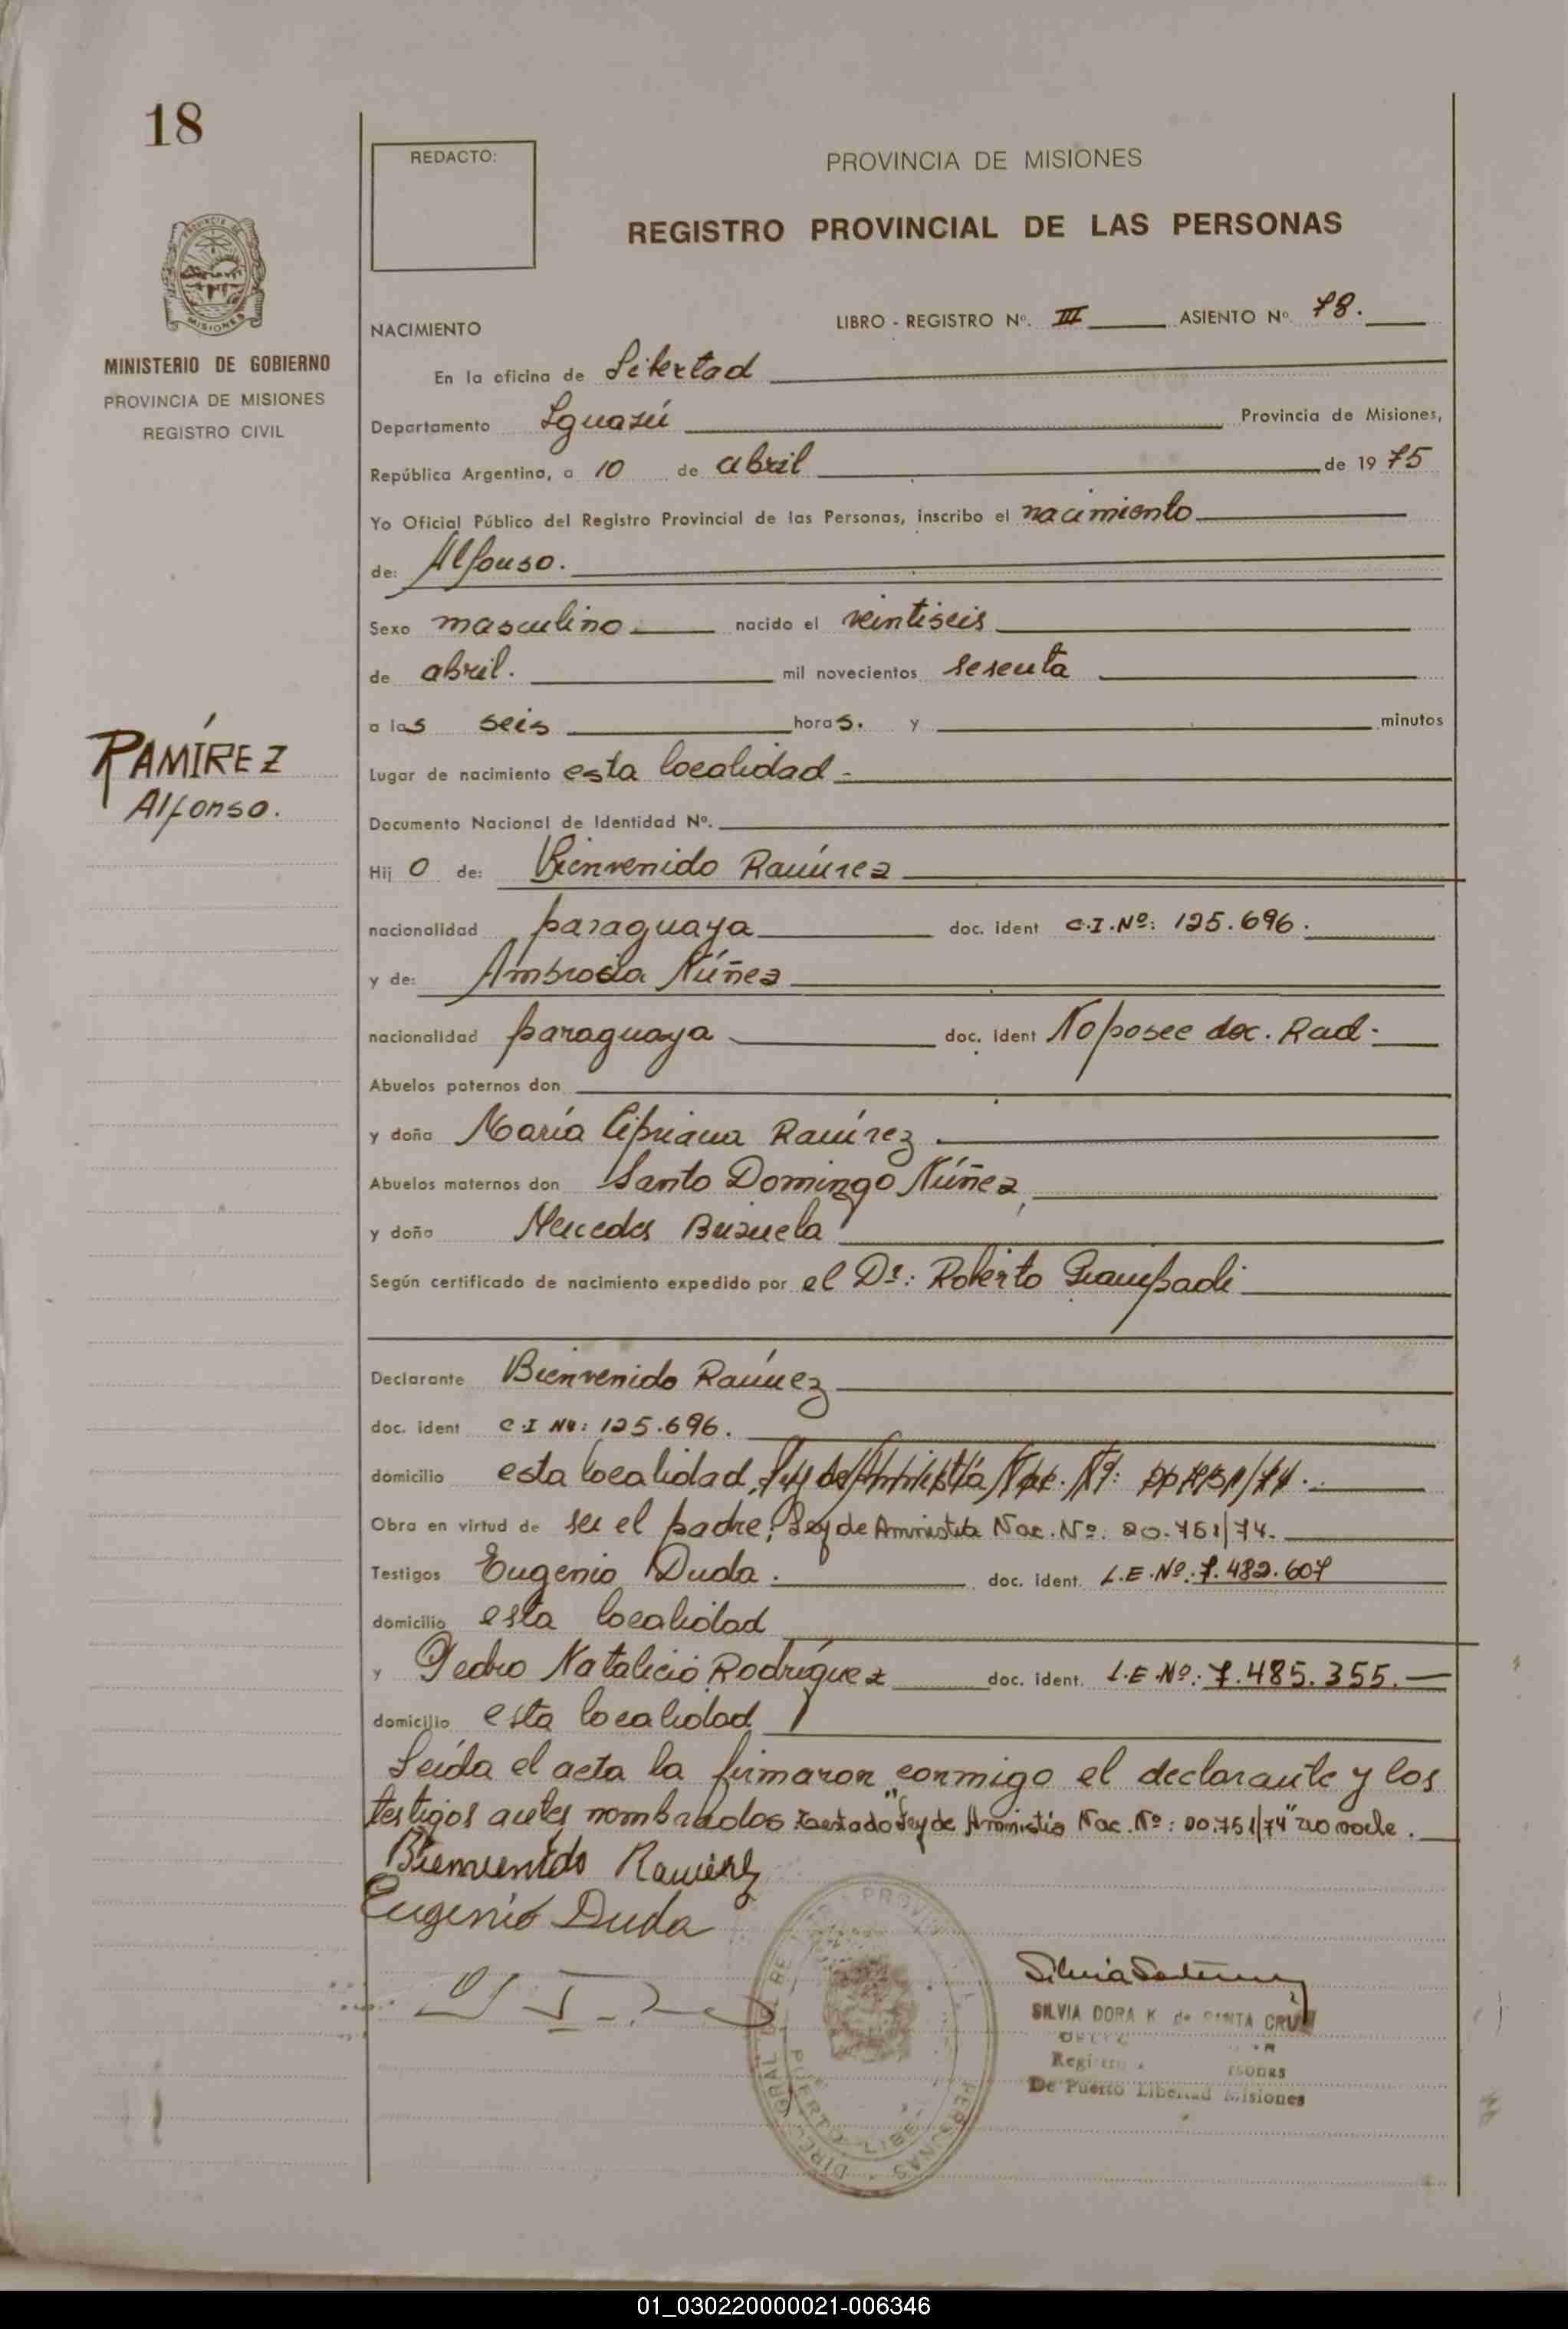 18
REDACTO:
PROVINCIA DE MISIONES
REGISTRO PROVINCIAL DE LAS PERSONAS
MISIONES
MINISTERIO DE GOBIERNO
PROVINCIA DE MISIONES
REGISTRO CIVIL
NACIMIENTO LIBRO - REGISTRO Nº. III ASIENTO Nº 78.
En la oficina de Libertad
Departamento Iguazú Provincia de Misiones,
República Argentina, a 10 de abril de 1975
Yo Oficial Público del Registro Provincial de las Personas, inscribo el nacimiento
de: Alfonso.
Sexo masculino nacido el veintiseis
de abril. mil novecientos sesenta
a las seis horas. y minutos
RAMÍREZ
Alfonso.
Lugar de nacimiento esta localidad.-
Documento Nacional de Identidad Nº.
Hijo de: Bienvenido Ramírez
nacionalidad paraguaya doc. ident C.I.Nº: 125.696.
y de: Ambrosia Núñez
nacionalidad paraguaya doc. ident No posee doc. Rad.
Abuelos paternos don
y doña María Cipriana Ramírez
Abuelos maternos don Santo Domingo Núñez
y doña Mercedes
Según certificado de nacimiento expedido por el Dr: Roberto
Declarante Bienvenido Ramírez
doc. ident C.I Nº: 125.696.
domicilio esta localidad, Ley de Amnistía Nac. Nº:
Obra en virtud de ser el padre; Ley de Amnistía Nac. Nº: 20.751/74.
Testigos Eugenio Duda. doc. ident. L.E.Nº: 7.482.607
domicilio esta localidad
y Pedro Natalicio Rodríguez doc. ident. L.E.Nº: 7.485.355.
domicilio esta localidad
Leída el acta la firmaron conmigo el declarante y los
testigos antes nombrados Testado "Ley de Amnistía Nac. Nº: 20.751/74" no vale.
Bienvenido Ramírez
Eugenio Duda
SILVIA DORA K de SANTA CRUZ
De Puerto Libertad Misiones
01_030220000021-006346